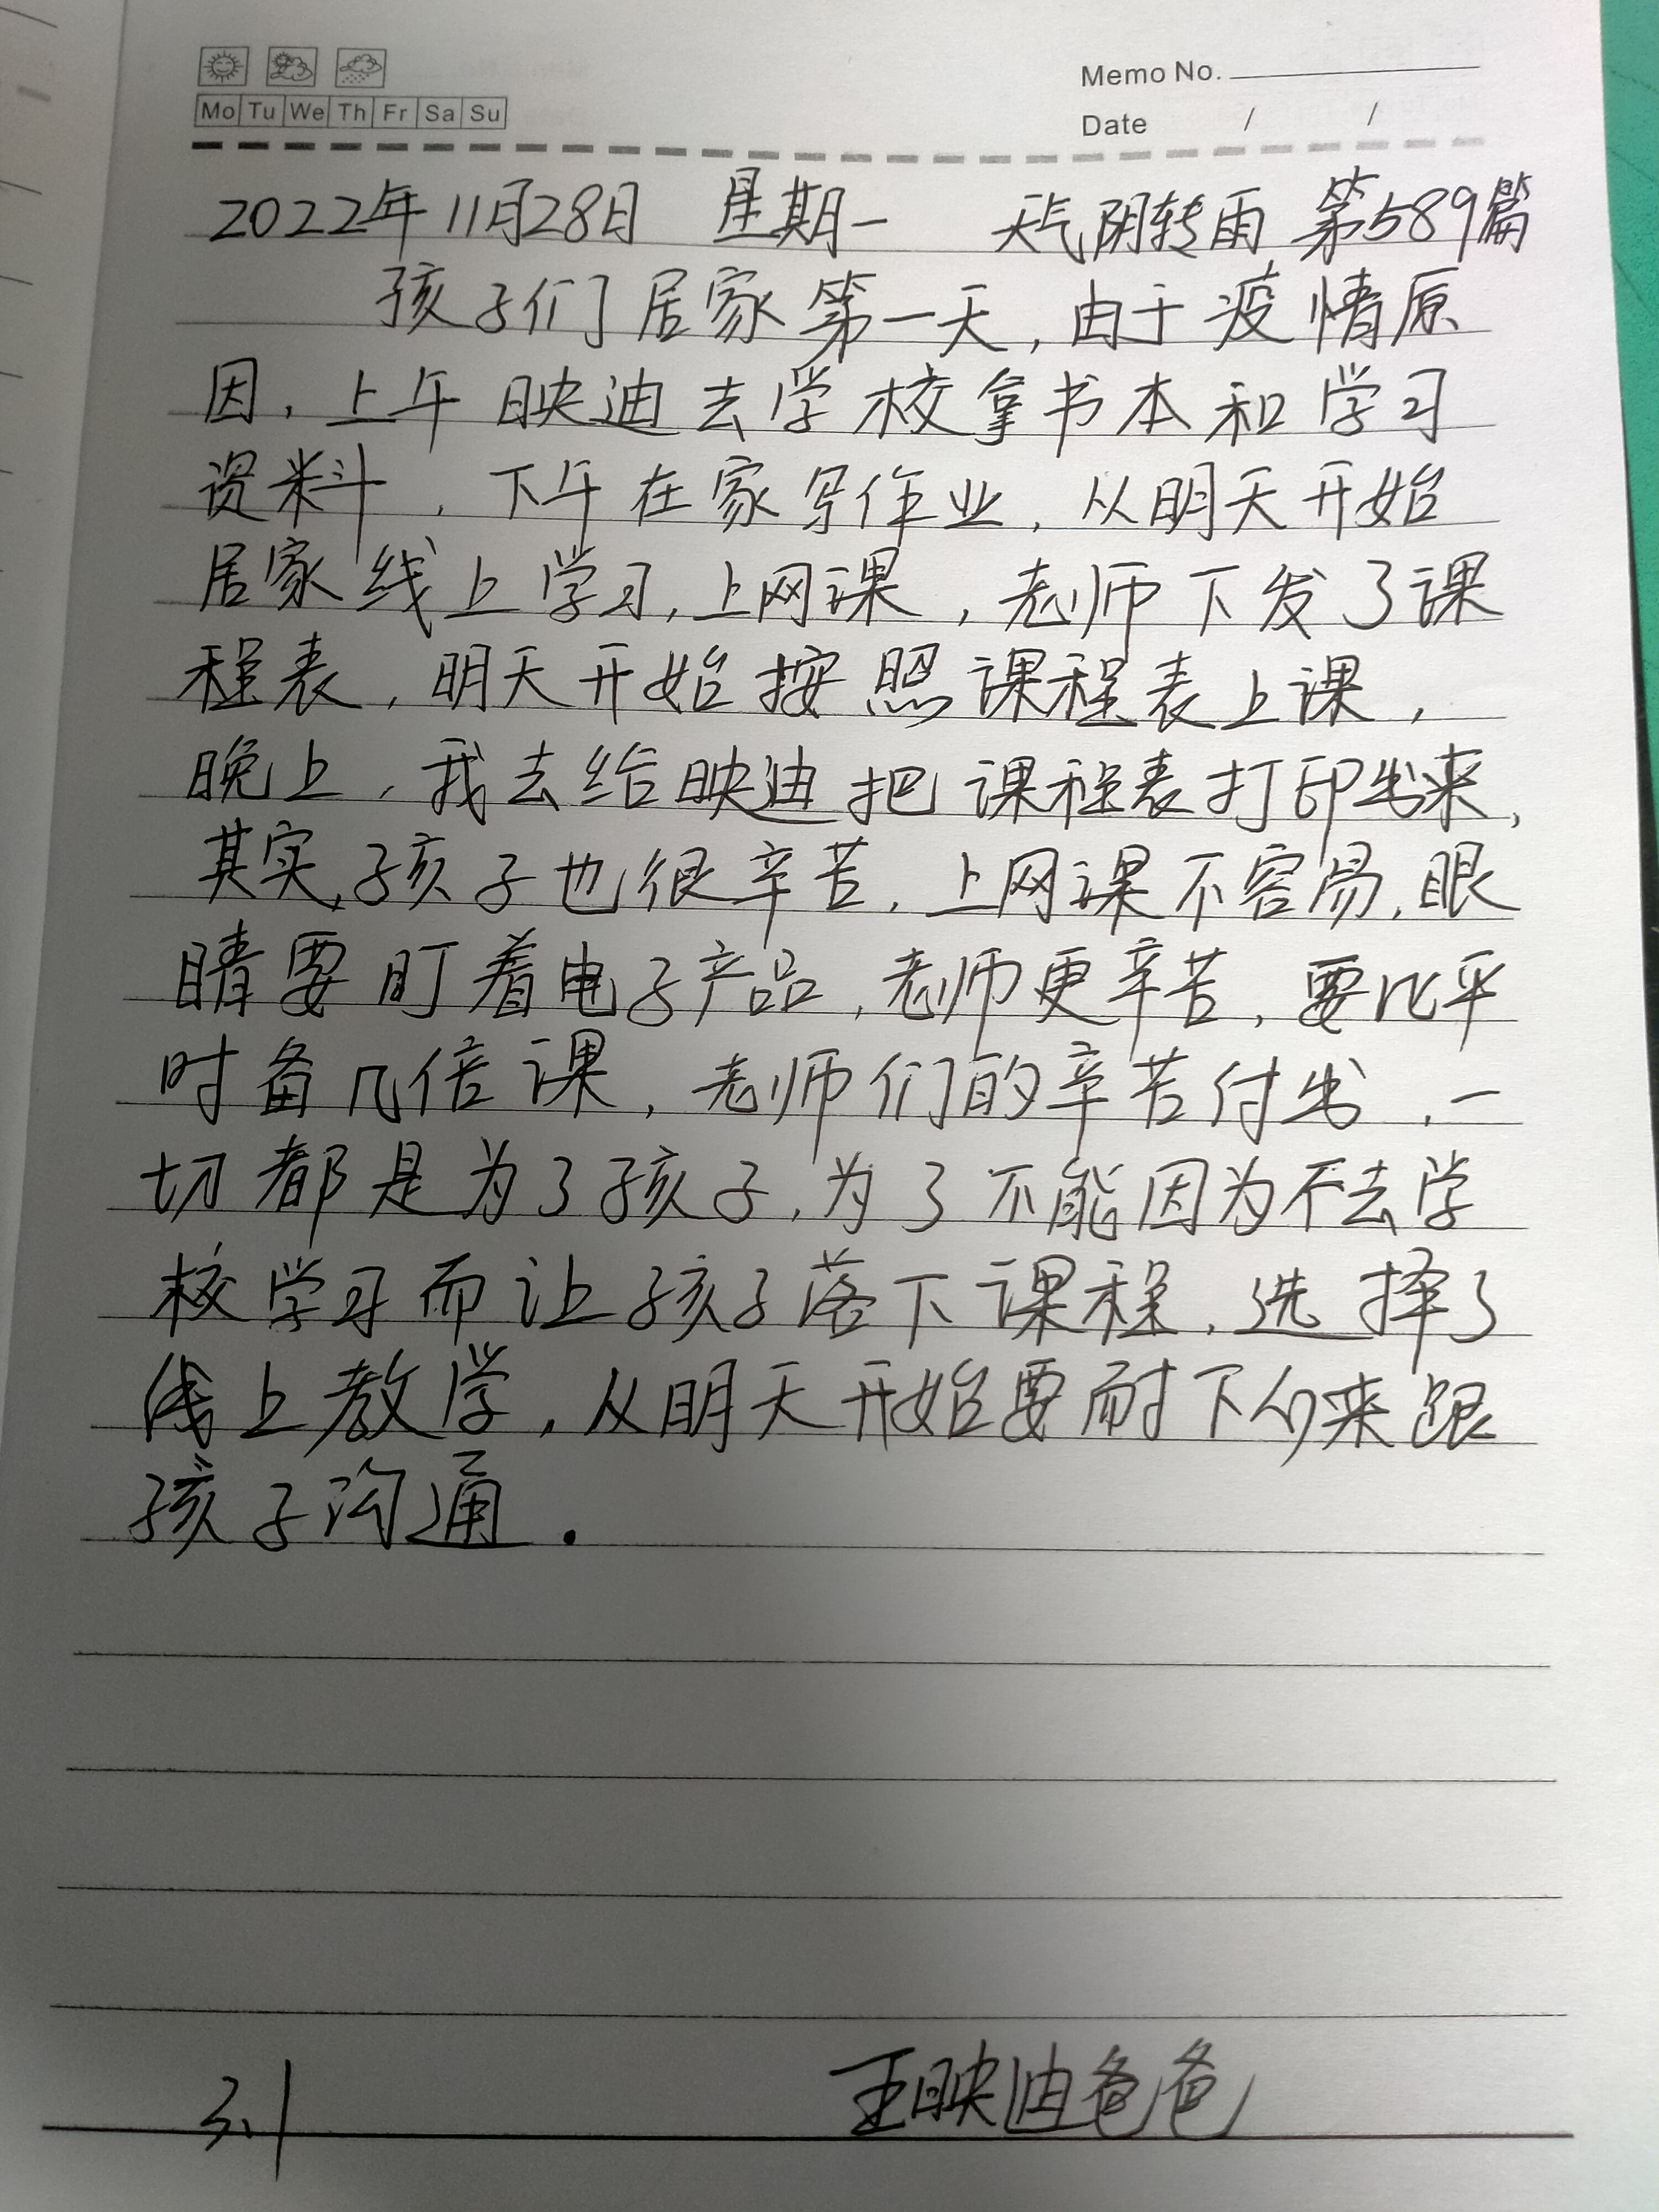 Memo No.
Mo Tu We Th Fr Sa Su
Date / /
2022年11月28日 星期一 天气阴转雨 第589篇
孩子们居家第一天,由于疫情原
因,上午映迪去学校拿书本和学习
资料,下午在家写作业,从明天开始
居家线上学习,上网课,老师下发了课
程表,明天开始按照课程表上课,
晚上,我去给映迪把课程表打印出来,
其实,孩子也很辛苦,上网课不容易,眼
睛要盯着电子产品,老师更辛苦,要比平
时备几倍课,老师们的辛苦付出,一
切都是为了孩子,为了不能因为不去学
校学习而让孩子落下课程,选择了
线上教学,从明天开始要耐下心来跟
孩子沟通.
3.1
王映迪爸爸